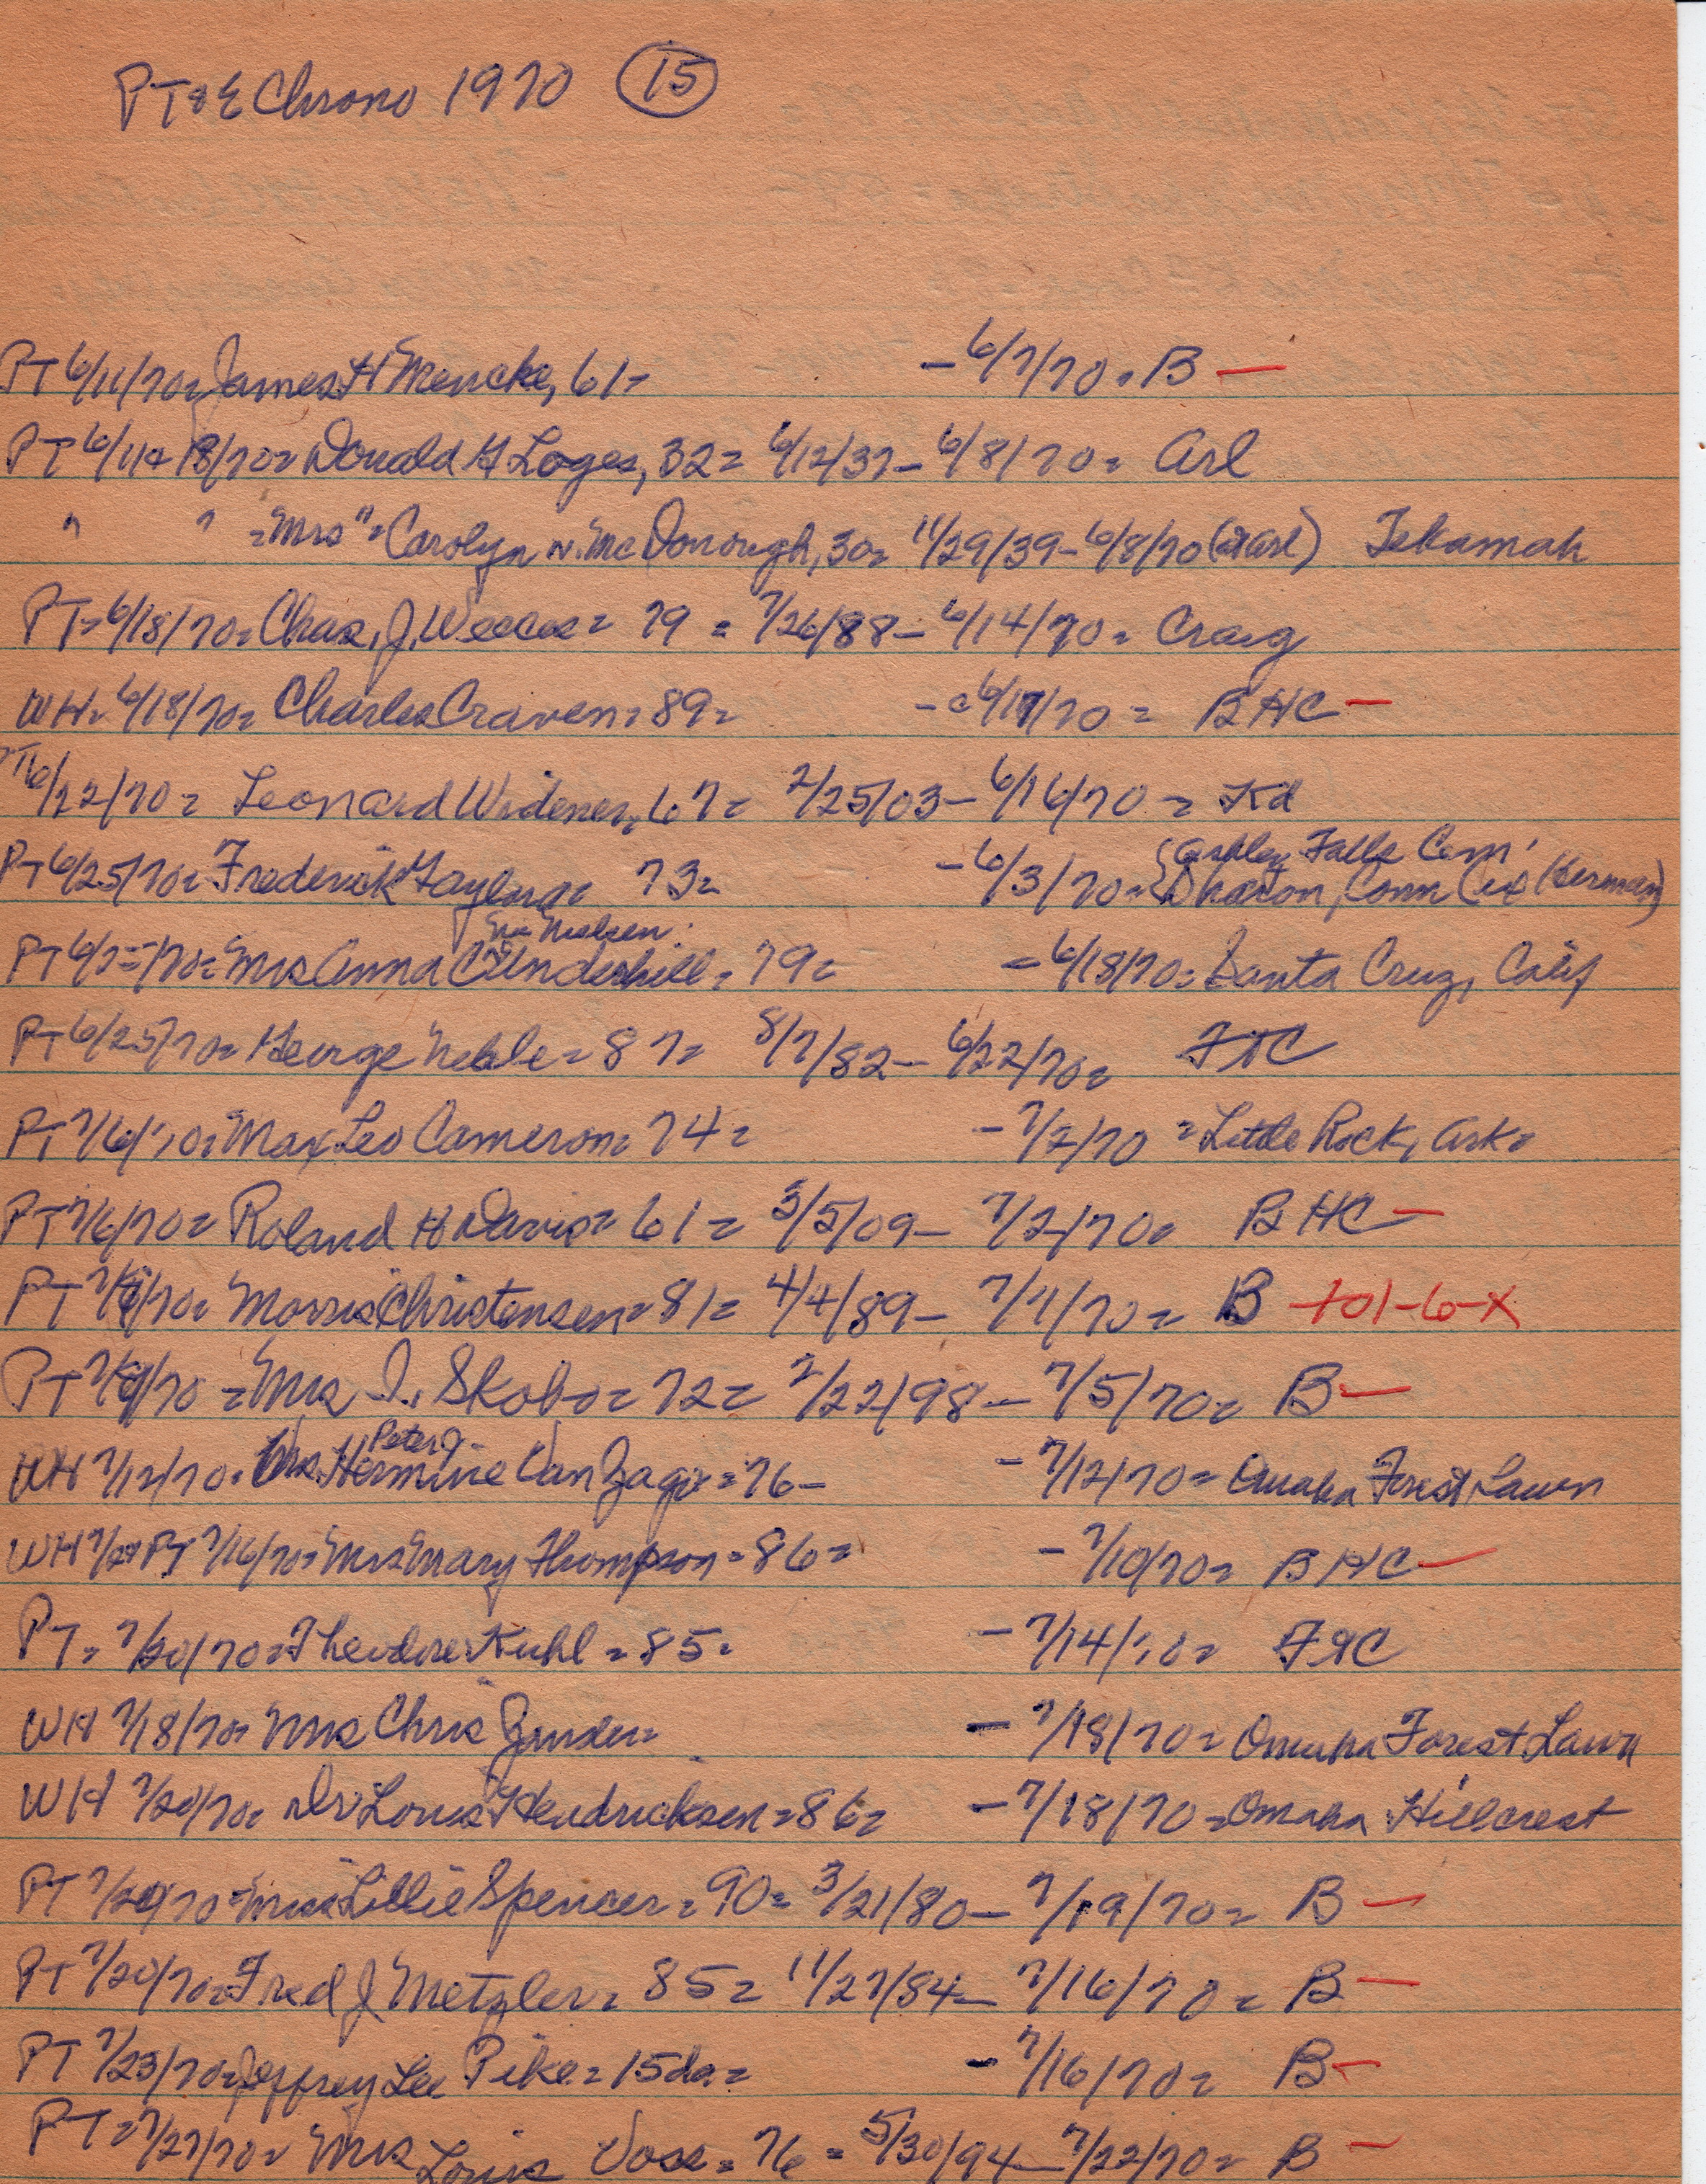 PT & E Chrono 1970 (15)
PT 6/11/70= James H Mencke, 61= - 6/7/70= B —
PT 6/11+18/70= Donald H Loges, 32= 6/12/37- 6/8/70= Arl
" " =Mrs "= Carolyn N. McDonough, 30= 11/29/39-6/8/70 (at Arl) Tekamah
PT=6/18/70= Chas. J. = 79 = 7/26/88- 6/14/70= Craig
WH= 6/18/70= Charles Craven= 89= -c6/17/70= BHC —
PT 6/22/70= Leonard Widener= 67= 2/25/03- 6/16/70= Kd
PT 6/25/70= Frederick Gaylord= 73= - 6/3/70= { Ashley Falls Cem
Sharon, Conn (ex Herman)
Nielsen
PT 6/25/70= Mrs Anna C Underhill= 79= = 6/18/70= Santa Cruz, Calif
PT 6/25/70= George Neble= 87= 8/7/82- 6/22/70= FTC
PT 7/6/70= Max Leo Cameron= 74= - 7/2/70 = Little Rock, Ark=
PT 7/6/70= Roland H Davis= 61= 3/5/09- 7/2/70= BHC —
PT 7/9/70= Morris Christensen= 81= 4/4/89- 7/7/70= B +01-6-X
PT 7/9/70 = Mrs I. Skobo= 72= 2/22/98- 7/5/70= B —
Peter J.
WH 7/12/70= Mrs. Hermine Van Zago = 76- - 7/12/70= Omaha Forest Lawn
WH PT 7/16/70= Mrs Mary Thompson= 86= - 7/10/70= BHC —
PT= 7/20/70= Theodore Kuhl = 85= - 7/14/70= FTC
WH 7/18/70= Mrs Chris = - 7/18/70= Omaha Forest Lawn
WH 7/20/70= Dr Louis Hendricksen= 86= - 7/18/70= Omaha Hillcrest
PT 7/20/70= Mrs Lillie Spencer= 90= 3/21/80- 7/19/70= B —
PT 7/20/70= Fred J Metzler= 85= 11/27/84- 7/16/70= B —
PT 7/23/70= Jeffrey Lee Pike= 15da= - 7/16/70= B —
PT=7/27/70= Mrs Louis Voss= 76 = 5/30/94- 7/22/70= B —